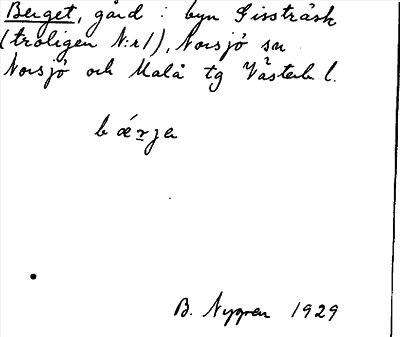 Berget, gård i byn Gissträsk
(troligen N:r 1), Norsjö sn
Norsjö och Malå tg Västerb l.
bærja
B. Nygren 1929